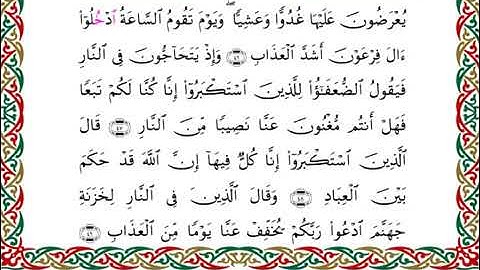 يُعْرَضُونَ عَلَيْهَا غُدُوًّا وَعَشِيًّا ۖ وَيَوْمَ تَقُومُ السَّاعَةُ ادْخُلُوٓا۟
ءَالَ فِرْعَوْنَ أَشَدَّ الْعَذَابِ ﴿٤٦﴾ وَإِذْ يَتَحَآجُّونَ فِى النَّارِ
فَيَقُولُ الضُّعَفَٰٓؤُا۟ لِلَّذِينَ اسْتَكْبَرُوٓا۟ إِنَّا كُنَّا لَكُمْ تَبَعًا
فَهَلْ أَنتُم مُّغْنُونَ عَنَّا نَصِيبًا مِّنَ النَّارِ ﴿٤٧﴾ قَالَ
الَّذِينَ اسْتَكْبَرُوٓا۟ إِنَّا كُلٌّ فِيهَآ إِنَّ اللَّهَ قَدْ حَكَمَ
بَيْنَ الْعِبَادِ ﴿٤٨﴾ وَقَالَ الَّذِينَ فِى النَّارِ لِخَزَنَةِ
جَهَنَّمَ ادْعُوا۟ رَبَّكُمْ يُخَفِّفْ عَنَّا يَوْمًا مِّنَ الْعَذَابِ ﴿٤٩﴾